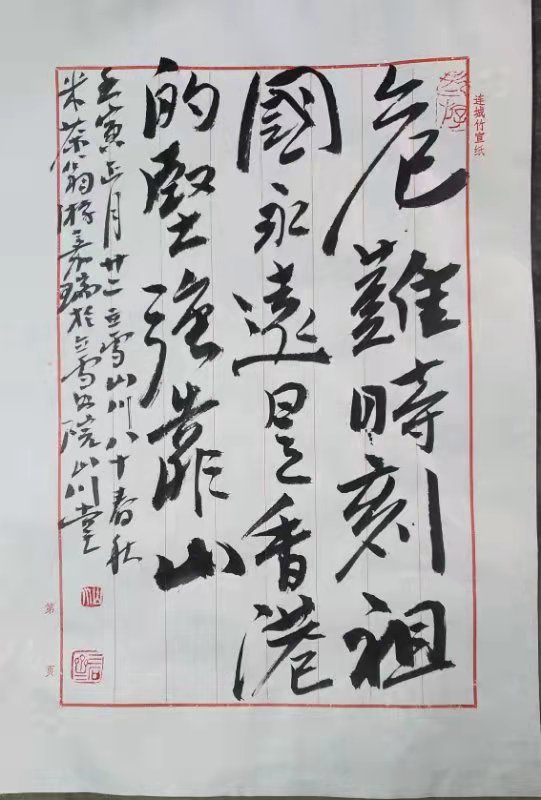 危難時刻祖
國永遠是香港
的堅強靠山
壬寅正月廿二立雪山川八十春秋
米荼翁游嘉瑞於立雪書院山川堂
连城竹宣纸
第 页